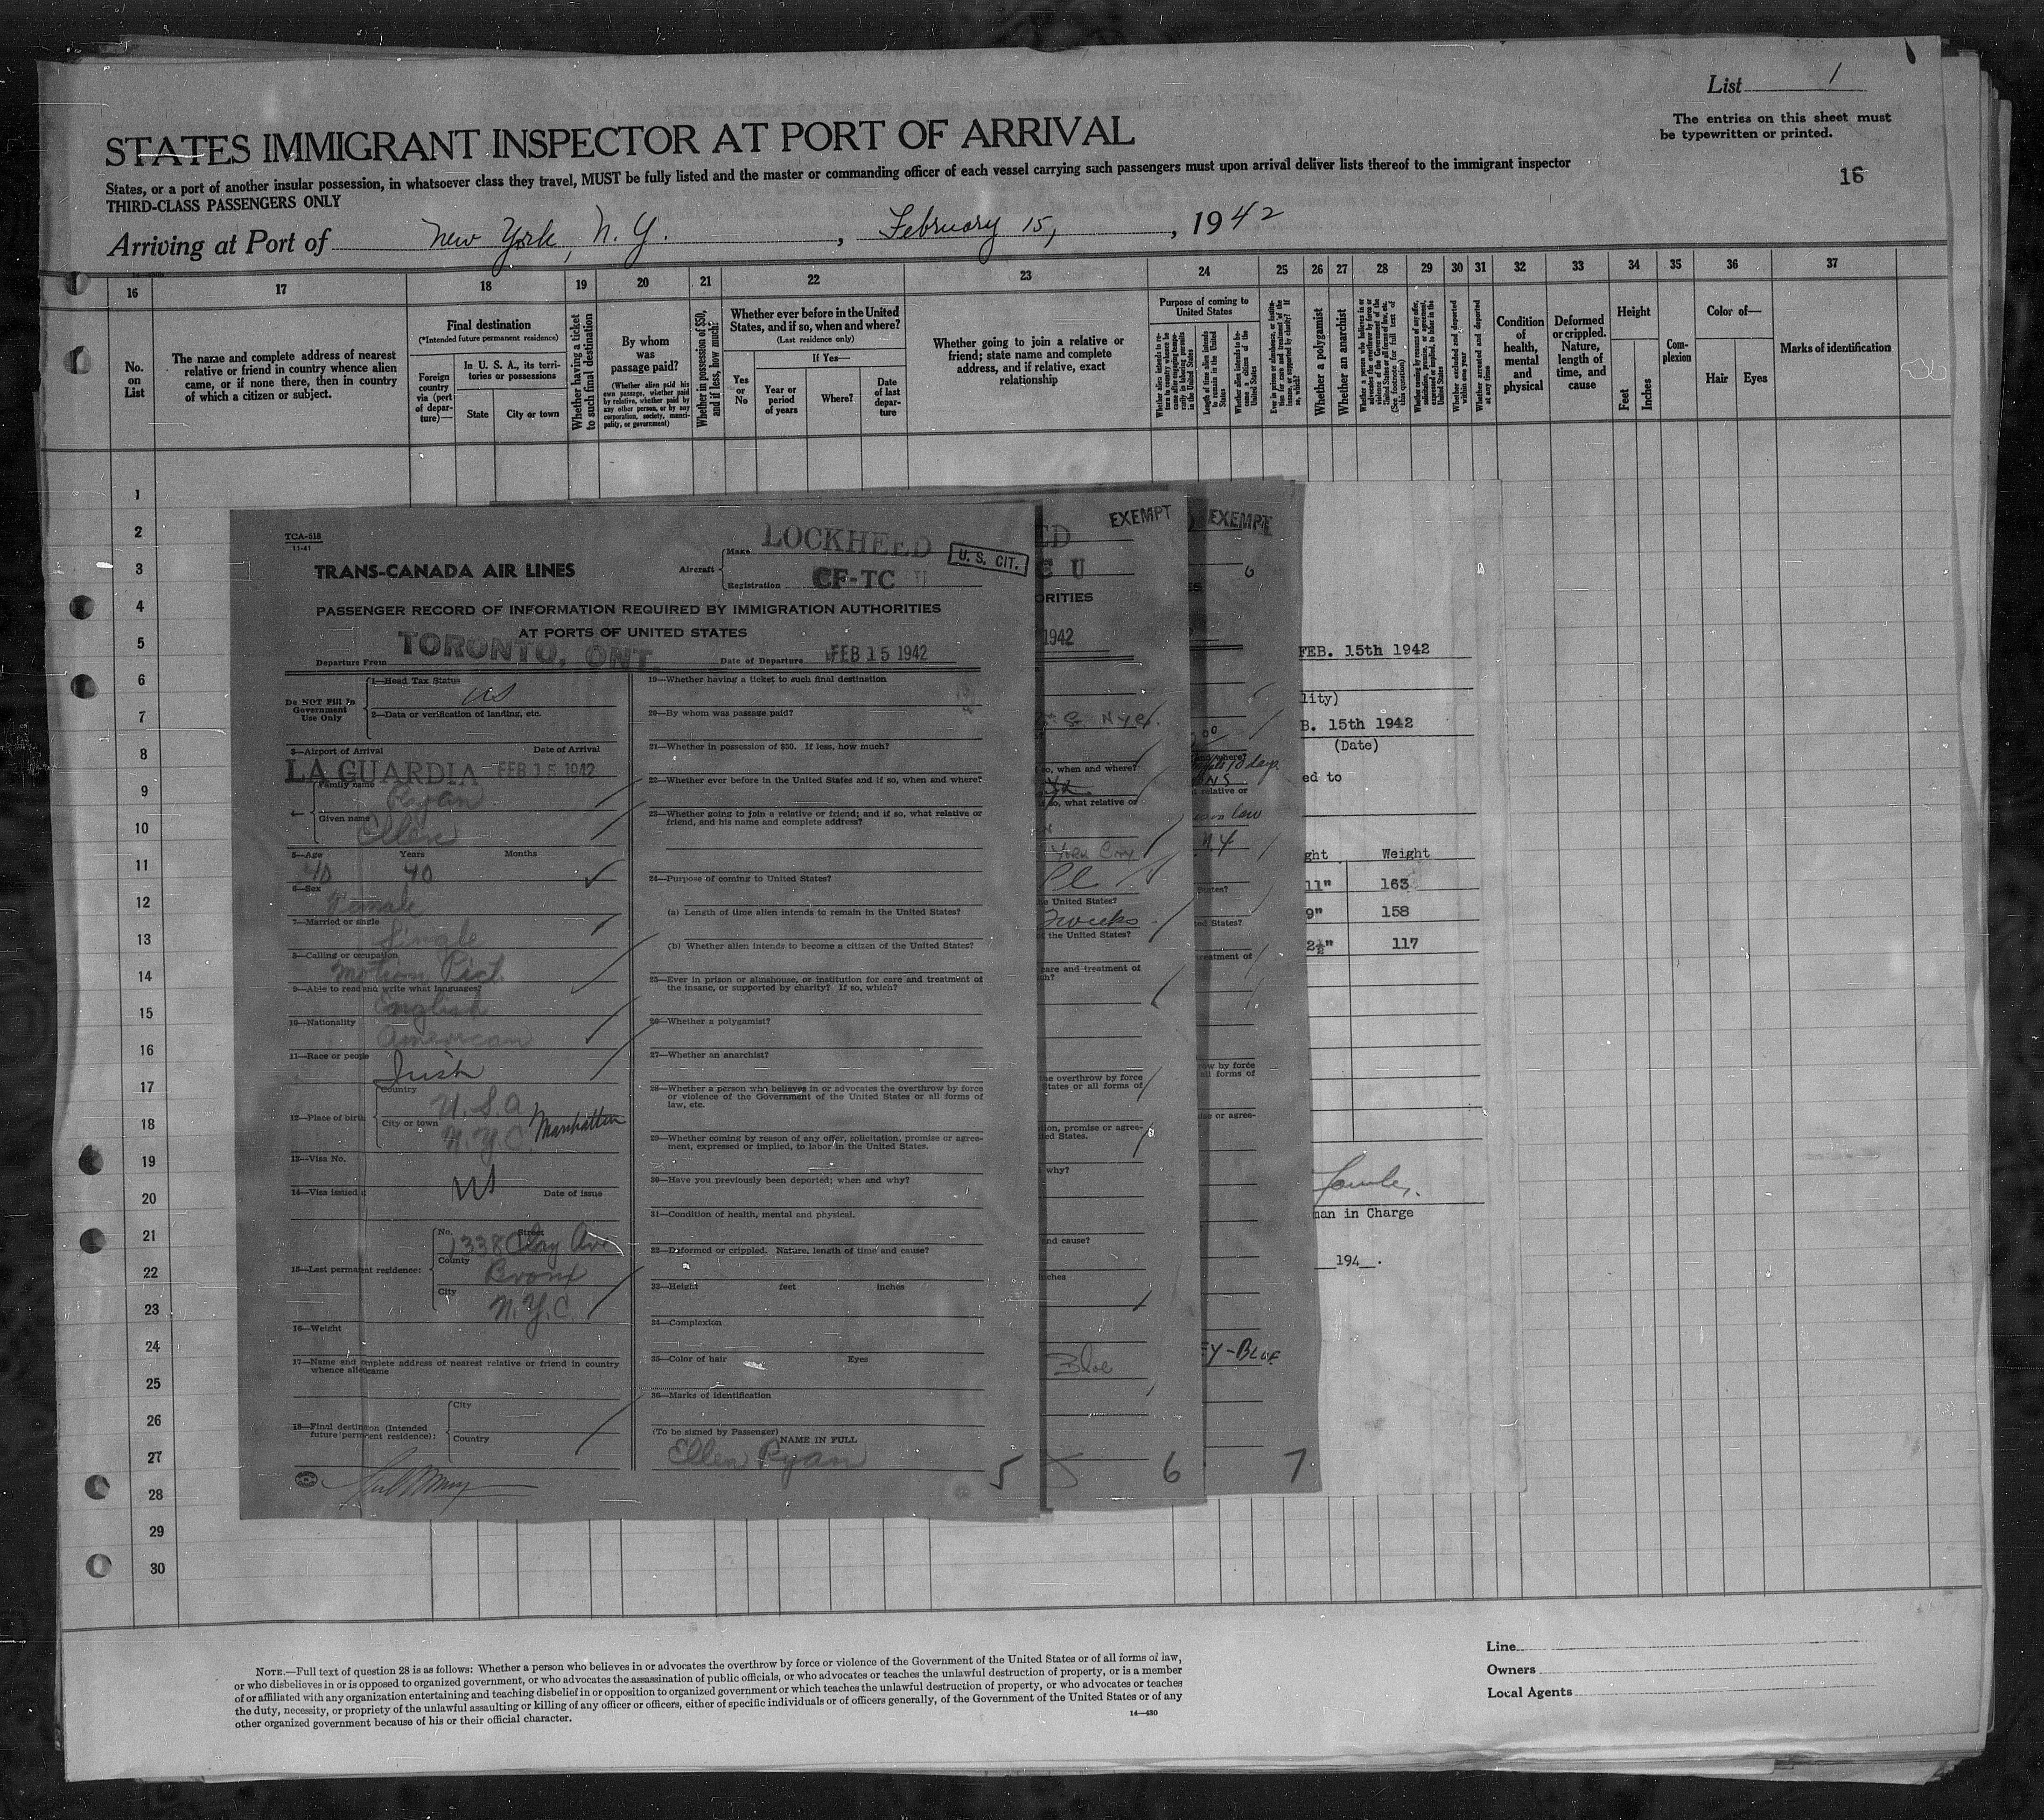 List 1
The entries on this sheet must
be typewritten or printed.
16
STATES IMMIGRANT INSPECTOR AT PORT OF ARRIVAL
States, or a port of another insular possession, in whatsoever class they travel, MUST be fully listed and the master or commanding officer of each vessel carrying such passengers must upon arrival deliver lists thereof to the immigrant inspector
THIRD-CLASS PASSENGERS ONLY
Arriving at Port of New York, N. Y. , February 15, , 1942
16 17 18 19 20 21 22 23 24 25 26 27 28 29 30 31 32 33 34 35 36 37
No.
on
List
The name and complete address of nearest
relative or friend in country whence alien
came, or if none there, then in country
of which a citizen or subject.
Final destination
(*Intended future permanent residence)
Foreign
country
via (port
of depar-
ture)—
In U. S. A., its terri-
tories or possessions
State
City or town
Whether having a ticket
to such final destination
By whom
was
passage paid?
(Whether alien paid his
own passage, whether paid
by relative, whether paid by
any other person, or by any
corporation, society, munici-
pality, or government)
Whether in possession of $50,
and if less, how much?
Whether ever before in the United
States, and if so, when and where?
(Last residence only)
Yes
or
No
If Yes—
Year or
period
of years
Where?
Date
of last
depar-
ture
Whether going to join a relative or
friend; state name and complete
address, and if relative, exact
relationship
Purpose of coming to
United States
Length of time alien intends
to remain in the United
States
Whether a polygamist
Whether an anarchist
Whether excluded and deported
within one year
Whether arrested and deported
at any time
Condition
of
health,
mental
and
physical
Deformed
or crippled.
Nature,
length of
time, and
cause
Height
Feet
Inches
Com-
plexion
Color of—
Hair
Eyes
Marks of identification
1
2
3
4
5
6
7
8
9
10
11
12
13
14
15
16
17
18
19
20
21
22
23
24
25
26
27
28
29
30
TCA-518
11-41
TRANS-CANADA AIR LINES
Aircraft
Make LOCKHEED
Registration CF-TC U
U. S. CIT.
PASSENGER RECORD OF INFORMATION REQUIRED BY IMMIGRATION AUTHORITIES
AT PORTS OF UNITED STATES
Departure From TORONTO, ONT.
Date of Departure FEB 15 1942
Do NOT Fill In
Government
Use Only
1—Head Tax Status
US
2—Data or verification of landing, etc.
3—Airport of Arrival Date of Arrival
LA GUARDIA FEB 15 1942
4—
Family name Ryan
Given name Ellen
5—Age Years Months
40 40
6—Sex
Female
7—Married or single
Single
8—Calling or occupation
Motion Pict.
9—Able to read and write what languages?
English
10—Nationality
American
11—Race or people
Irish
12—Place of birth
Country
U. S. A
City or town
N.Y.C. Manhattan
13—Visa No.
14—Visa issued Date of issue
US
15—Last permanent residence:
No. Street
1338 Clay Ave
County
Bronx
City
N.Y.C.
16—Weight
17—Name and complete address of nearest relative or friend in country
whence alien came
18—Final destination (Intended
future permanent residence):
City
Country
19—Whether having a ticket to such final destination
20—By whom was passage paid?
21—Whether in possession of $50. If less, how much?
22—Whether ever before in the United States and if so, when and where?
23—Whether going to join a relative or friend; and if so, what relative or
friend, and his name and complete address?
24—Purpose of coming to United States?
(a) Length of time alien intends to remain in the United States?
(b) Whether alien intends to become a citizen of the United States?
25—Ever in prison or almshouse, or institution for care and treatment of
the insane, or supported by charity? If so, which?
26—Whether a polygamist?
27—Whether an anarchist?
28—Whether a person who believes in or advocates the overthrow by force
or violence of the Government of the United States or all forms of
law, etc.
29—Whether coming by reason of any offer, solicitation, promise or agree-
ment, expressed or implied, to labor in the United States.
30—Have you previously been deported; when and why?
31—Condition of health, mental and physical.
32—Deformed or crippled. Nature, length of time and cause?
33—Height feet inches
34—Complexion
35—Color of hair Eyes
36—Marks of identification
(To be signed by Passenger)
NAME IN FULL
Ellen Ryan
5
ED
EXEMPT
C U
ORITIES
1942
so, when and where?
so, what relative or
York City
the United States?
2 weeks
the United States?
care and treatment of
the overthrow by force
States or all forms of
tion, promise or agree-
ted States.
why?
and cause?
inches
Blue
6
EXEMPT
10 days
relative or
law
N.Y
States?
ted States?
treatment of
row by force
all forms of
ise or agree-
EY-BLUE
7
FEB. 15th 1942
lity)
B. 15th 1942
(Date)
ed to
ght Weight
11" 163
9" 158
2½" 117
man in Charge
194 .
NOTE.—Full text of question 28 is as follows: Whether a person who believes in or advocates the overthrow by force or violence of the Government of the United States or of all forms of law,
or who disbelieves in or is opposed to organized government, or who advocates the assassination of public officials, or who advocates or teaches the unlawful destruction of property, or is a member
of or affiliated with any organization entertaining and teaching disbelief in or opposition to organized government or which teaches the unlawful destruction of property, or who advocates or teaches
the duty, necessity, or propriety of the unlawful assaulting or killing of any officer or officers, either of specific individuals or of officers generally, of the Government of the United States or of any
other organized government because of his or their official character.
14—430
Line
Owners
Local Agents